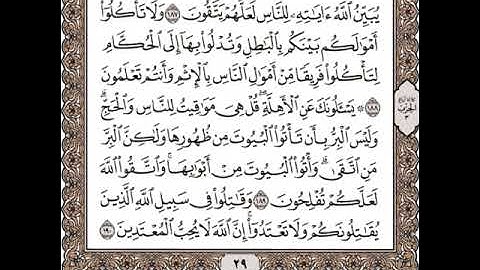 يُبَيِّنُ ٱللَّهُ ءَايَٰتِهِۦ لِلنَّاسِ لَعَلَّهُمْ يَتَّقُونَ ١٨٧ وَلَا تَأْكُلُوٓا۟
أَمْوَٰلَكُم بَيْنَكُم بِٱلْبَٰطِلِ وَتُدْلُوا۟ بِهَآ إِلَى ٱلْحُكَّامِ
لِتَأْكُلُوا۟ فَرِيقًا مِّنْ أَمْوَٰلِ ٱلنَّاسِ بِٱلْإِثْمِ وَأَنتُمْ تَعْلَمُونَ
١٨٨ ۞ يَسْـَٔلُونَكَ عَنِ ٱلْأَهِلَّةِ ۖ قُلْ هِىَ مَوَٰقِيتُ لِلنَّاسِ وَٱلْحَجِّ ۗ
وَلَيْسَ ٱلْبِرُّ بِأَن تَأْتُوا۟ ٱلْبُيُوتَ مِن ظُهُورِهَا وَلَٰكِنَّ ٱلْبِرَّ
مَنِ ٱتَّقَىٰ ۗ وَأْتُوا۟ ٱلْبُيُوتَ مِنْ أَبْوَٰبِهَا ۚ وَٱتَّقُوا۟ ٱللَّهَ
لَعَلَّكُمْ تُفْلِحُونَ ١٨٩ وَقَٰتِلُوا۟ فِى سَبِيلِ ٱللَّهِ ٱلَّذِينَ
يُقَٰتِلُونَكُمْ وَلَا تَعْتَدُوٓا۟ ۚ إِنَّ ٱللَّهَ لَا يُحِبُّ ٱلْمُعْتَدِينَ ١٩٠
٢٩